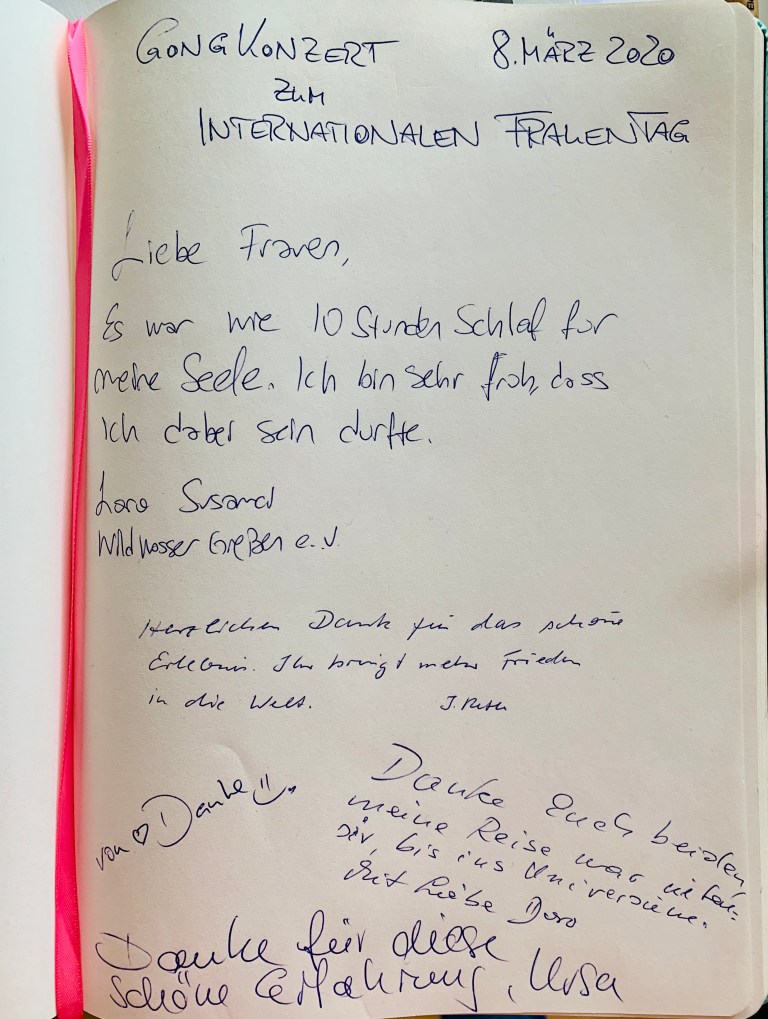 GONGKONZERT 8. MÄRZ 2020
ZUM
INTERNATIONALEN FRAUENTAG
Liebe Frauen,
Es war wie 10 Stunden Schlaf für
meine Seele. Ich bin sehr froh, dass
ich dabei sein durfte.
Wildwasser Gießen e.V.
Herzlichen Dank für das schöne
Erlebnis. Ihr bringt mehr Frieden
in die Welt.
von ♡ Danke
Danke Euch beiden,
meine Reise war inten-
siv, bis ins Universum.
Mit Liebe Doro
Danke für diese
schöne Erfahrung, Ursa